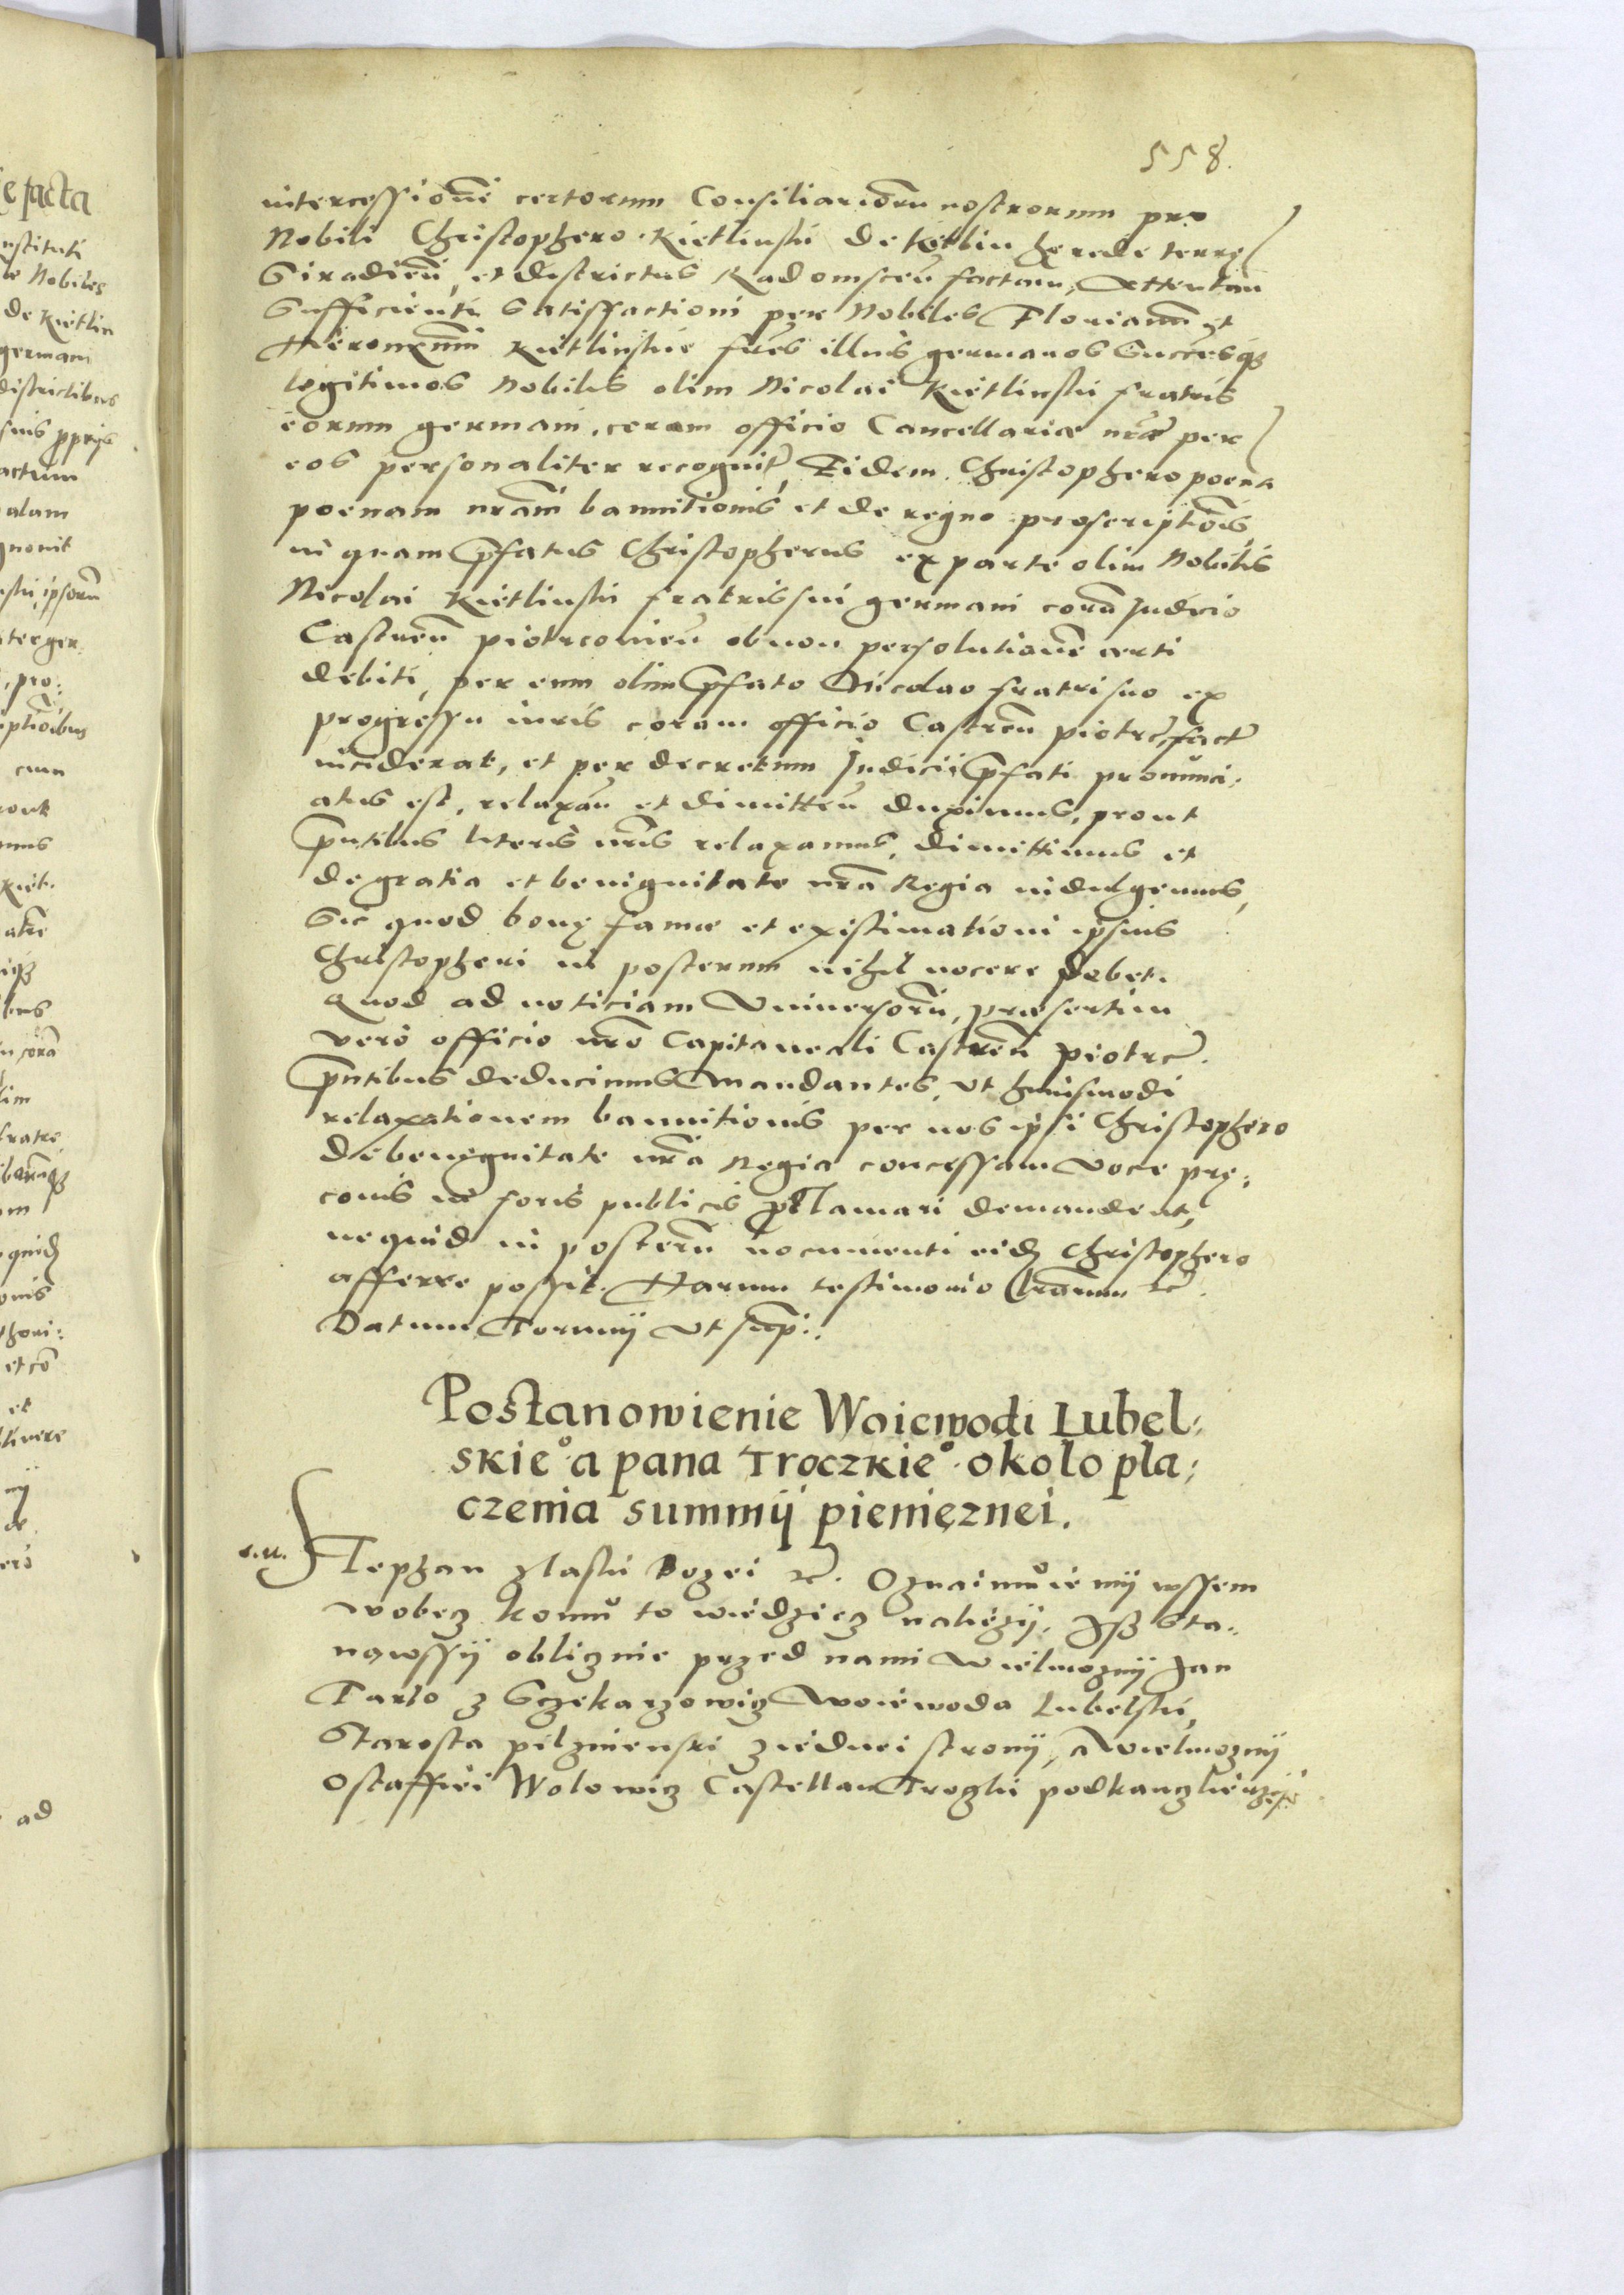 558.
intercessionē certorum Consiliariorū nostrorum pro
Nobili Christophero Kietlinski de Kietlin hęrede terrę
Siradień, et districtus Radomsceń factam, Attentaū
Sufficienti Satisfactioni per Nobiles Florianū et
Hieronimū Kietlinskie frēs illius germanos Succēsqȝ
legitimos Nobilis olim Nicolai Kietlinski fratris
eorum germani, coram officio Cancellariæ nrǣ per
eos personaliter recognit̃, Eidem Christophero poena
poenam nrām bannitionis et de regno proscriptiōis,
in quam p̄fatus Christopherus ex parte olim Nobilis
Nicolai Kietlinski fratris sui germani corā Judicio
Castreń Piotrconień ob non persolutionē certi
debiti, per eum olim p̄fato Nicolao fratri suo ex
progressu iuris coram officio Castreń Piotrc̃ fact̃
inciderat, et per decretum Judicii p̄fati pronunci:
atus est, relaxań et dimitteń duximus, prout
p̄ntibus literis nr̄is relaxamus, dimittimus et
de gratia et benignitate nrā Regia indulgemus,
Sic quod bonę famæ et existimationi ipsius
Christopheri in posterum nihil nocere debet.
Quod ad noticiam Vniversorū, præsertim
vero officio nrō Capitaneali Castreń Piotrc̃.
p̄ntibus deducimus Mandantes, Vt huiusmodi
relaxationem bannitionis per nos ipsi Christophero
de benegnitate nrā Regia concessam voce prę:
conis in foris publicis proclamari demandent,
ne quid in posterū nocumenti eidȝ Christophero
afferre possit. Harum testimonio lrārum ꝛc̃.
Datum Torunij Vt supr̃.
Postanowienie Woiewodi Lubel:
skieo a pana Troczkieo okolo pla:
czenia summij pienięznei.
Stephan Z laski Bozei ꝛc̃. Oznaimuiemij wssem
wobecz komu to wiedziecz nalezij, Jsz Sta:
nąwssij oblicznie przed nami Wielmoznij Jan
Tarlo z Sczekarzowicz Woiewoda Lubelski,
Starosta pilznienski z iednei stronij, A Wielmoznij
Ostaffiei Wolowicz Castellan Troczki podkanczlierzÿ